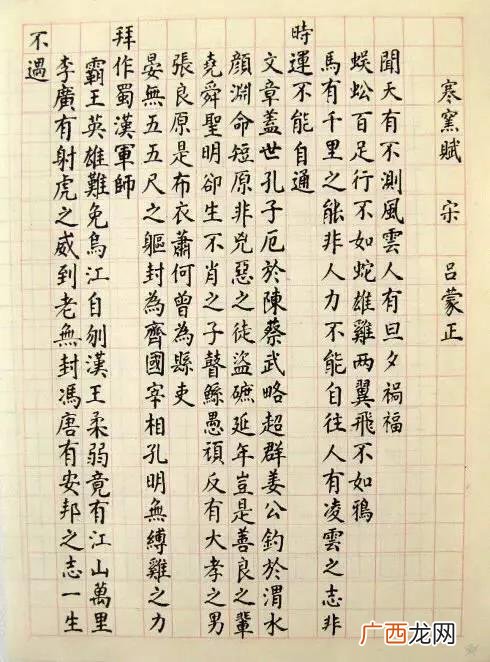 寒窯賦 宋 呂蒙正
聞天有不測風雲人有旦夕禍福
蜈蚣百足行不如蛇雄雞两翼飛不如鴉
馬有千里之能非人力不能自往人有凌雲之志非
時運不能自通
文章蓋世孔子厄於陳蔡武略超群姜公釣於渭水
顏淵命短原非兇惡之徒盜蹠延年豈是善良之輩
堯舜聖明卻生不肖之子瞽鯀愚頑反有大孝之男
張良原是布衣蕭何曾為縣吏
晏無五五尺之軀封為齊國宰相孔明無縛雞之力
拜作蜀漢軍師
霸王英雄難免烏江自刎漢王柔弱竟有江山萬里
李廣有射虎之威到老無封馮唐有安邦之志一生
不遇
广西龙网